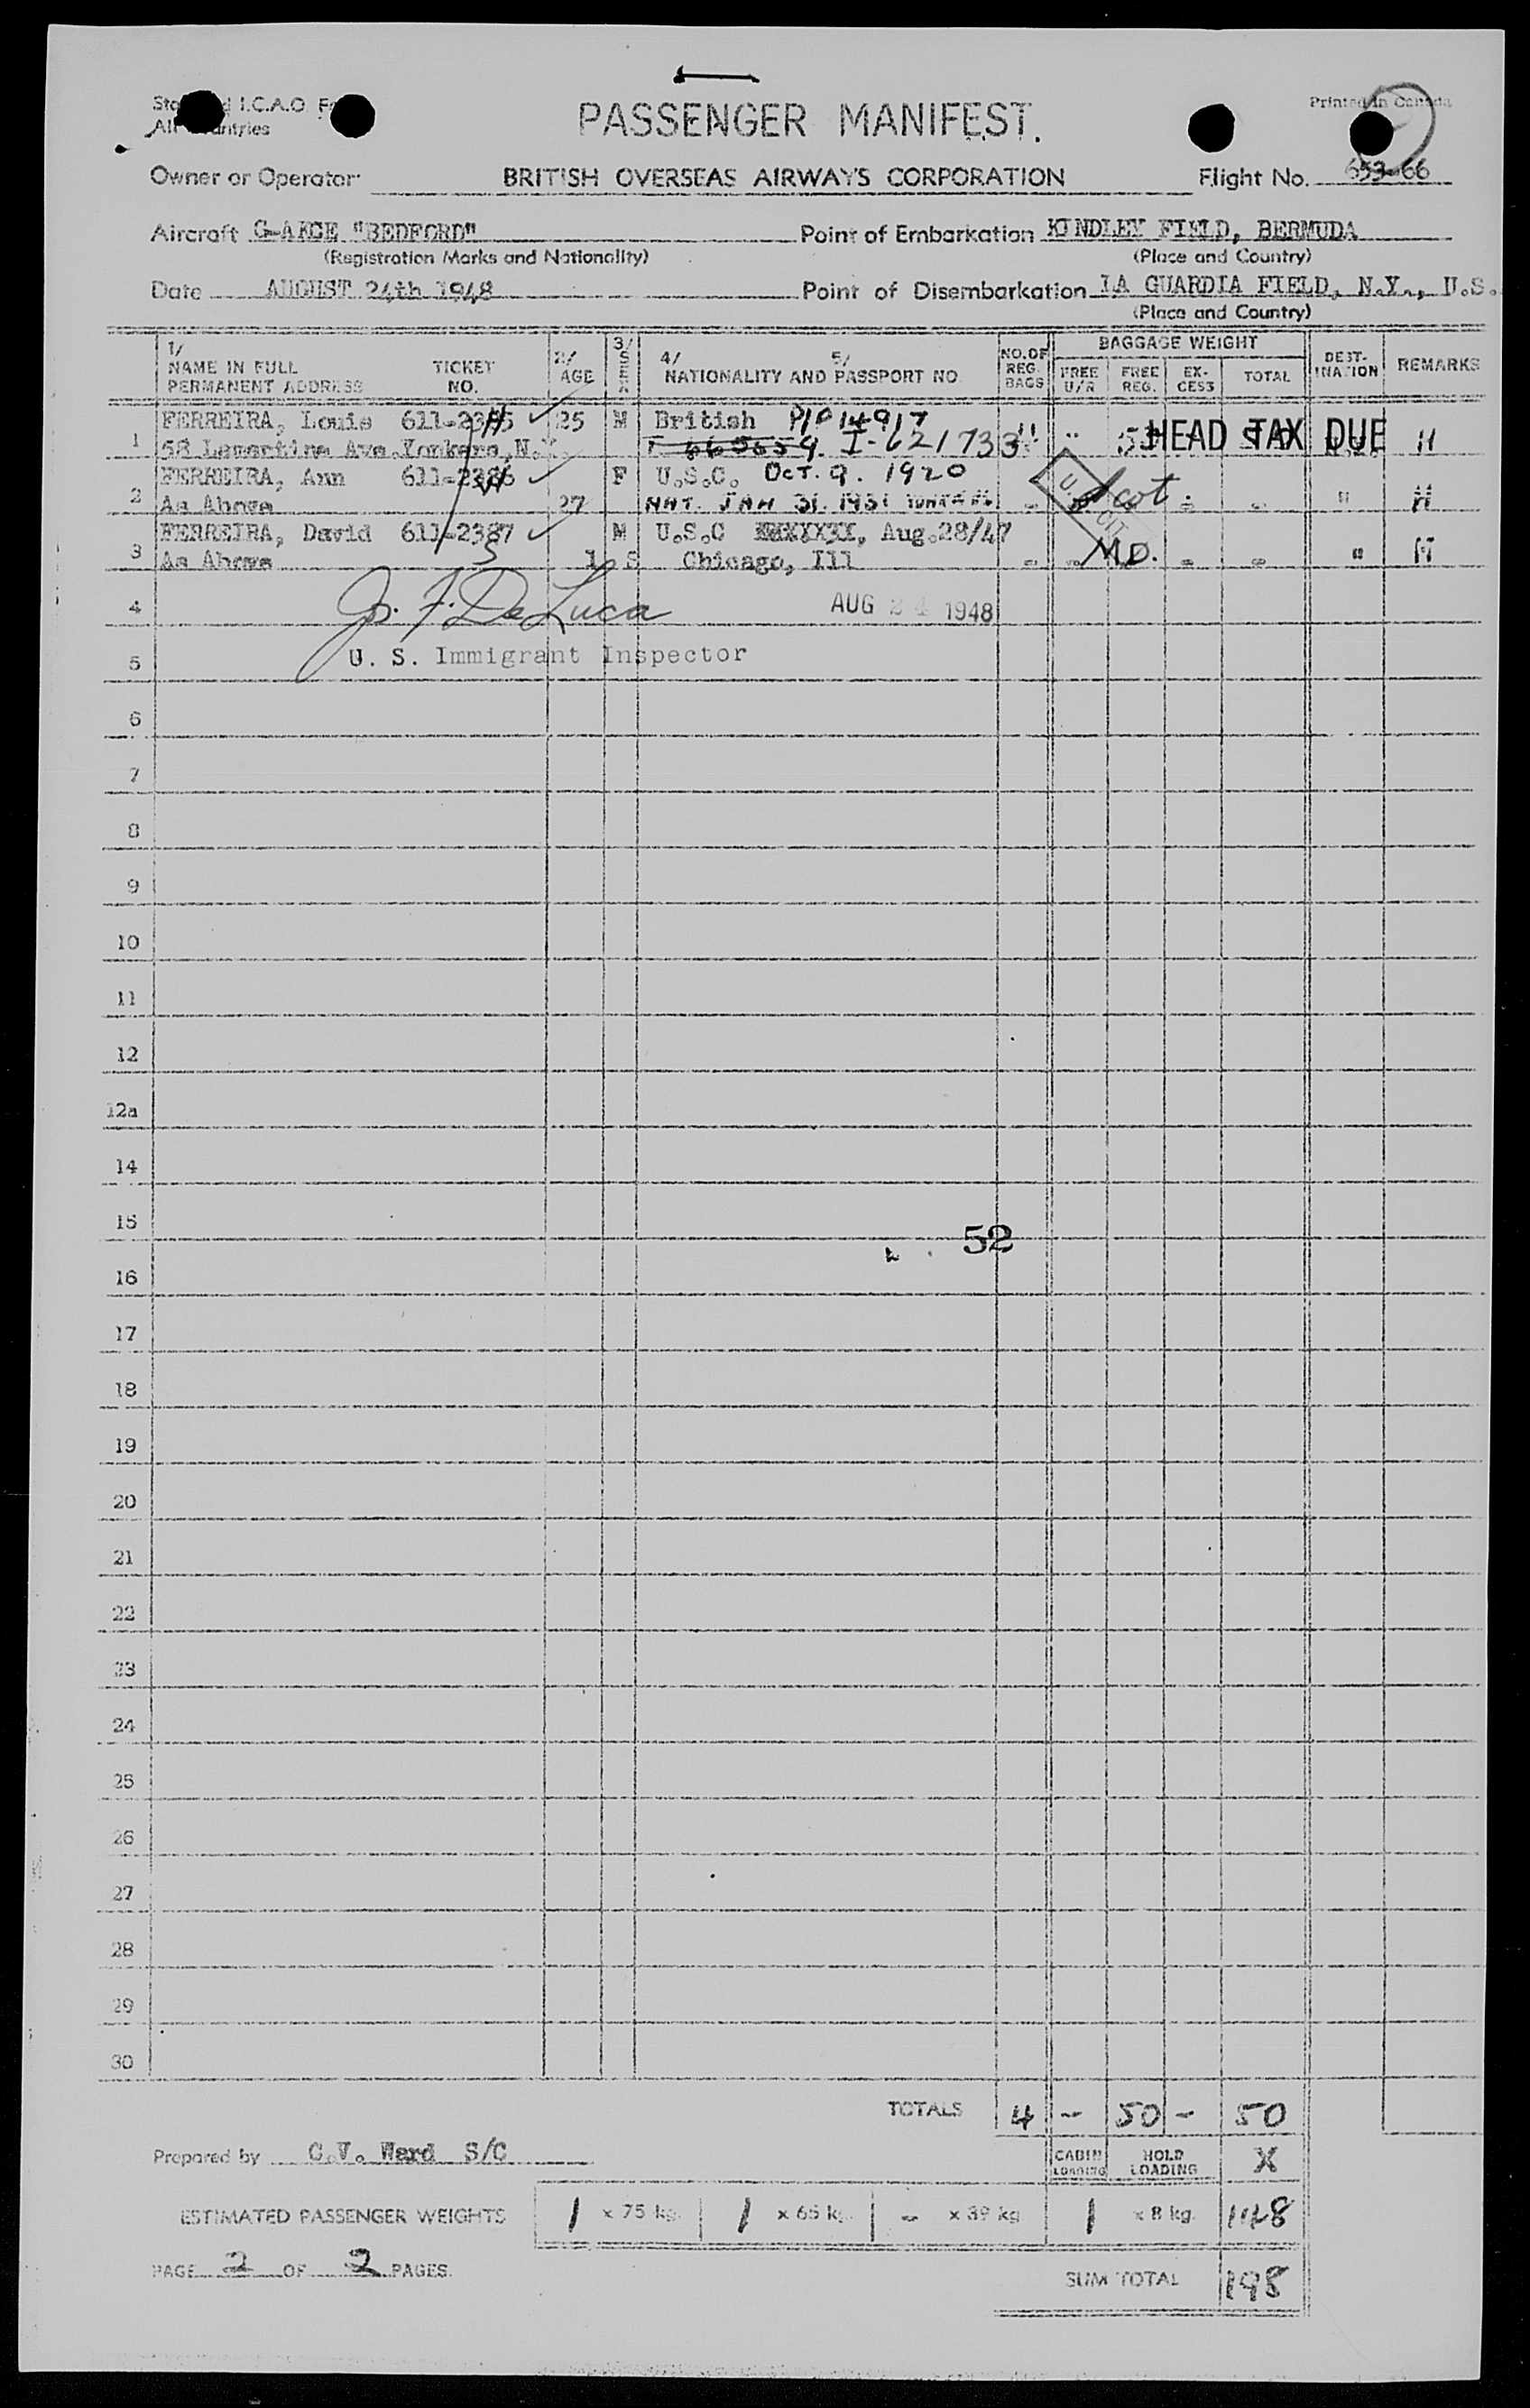 Printed in Canada
PASSENGER MANIFEST.
Owner or Operator BRITISH OVERSEAS AIRWAYS CORPORATION Flight No. 653-66
Aircraft "BEDFORD" Point of Embarkation KINDLEY FIELD, BERMUDA
(Registration Marks and Nationality) (Place and Country)
Date AUGUST 24th 1948 Point of Disembarkation LA GUARDIA FIELD, N.Y., U.S.
(Place and Country)
1/ NAME IN FULL PERMANENT ADDRESS TICKET NO. 2/ AGE 3/ SEX 4/ 5/ NATIONALITY AND PASSPORT NO NO. OF REG. BAGS BAGGAGE WEIGHT FREE U/A FREE REG. EX-CESS TOTAL DEST-INATION REMARKS
FERREIRA, Louis 611-2385 25 M British P1014917
1 58 Lamartine Ave. Yonkers, N. I-621733 HEAD TAX DUE
FERREIRA, Ann 611-2386 F U.S.C. Oct. 9. 1920
2 As Above 27 NAT. JAN 31. 1931 - - - " "
FERREIRA, David 611-2387 M U.S.C Aug.28/47
3 As Above 1 S Chicago, Ill - - M.D. - - " "
4 Jos. F. DeLuca AUG 24 1948
5 U. S. Immigrant Inspector
6
7
8
9
10
11
12
12a
14
15
52
16
17
18
19
20
21
22
23
24
25
26
27
28
29
30
TOTALS 4 - 50 - 50
Prepared by C.V. Ward S/C CABIN LOADING HOLD LOADING X
ESTIMATED PASSENGER WEIGHTS 1 x 75 kg. 1 x 65 kg. - x 39 kg 1 x 8 kg. 148
PAGE 2 OF 2 PAGES. SUM TOTAL 198